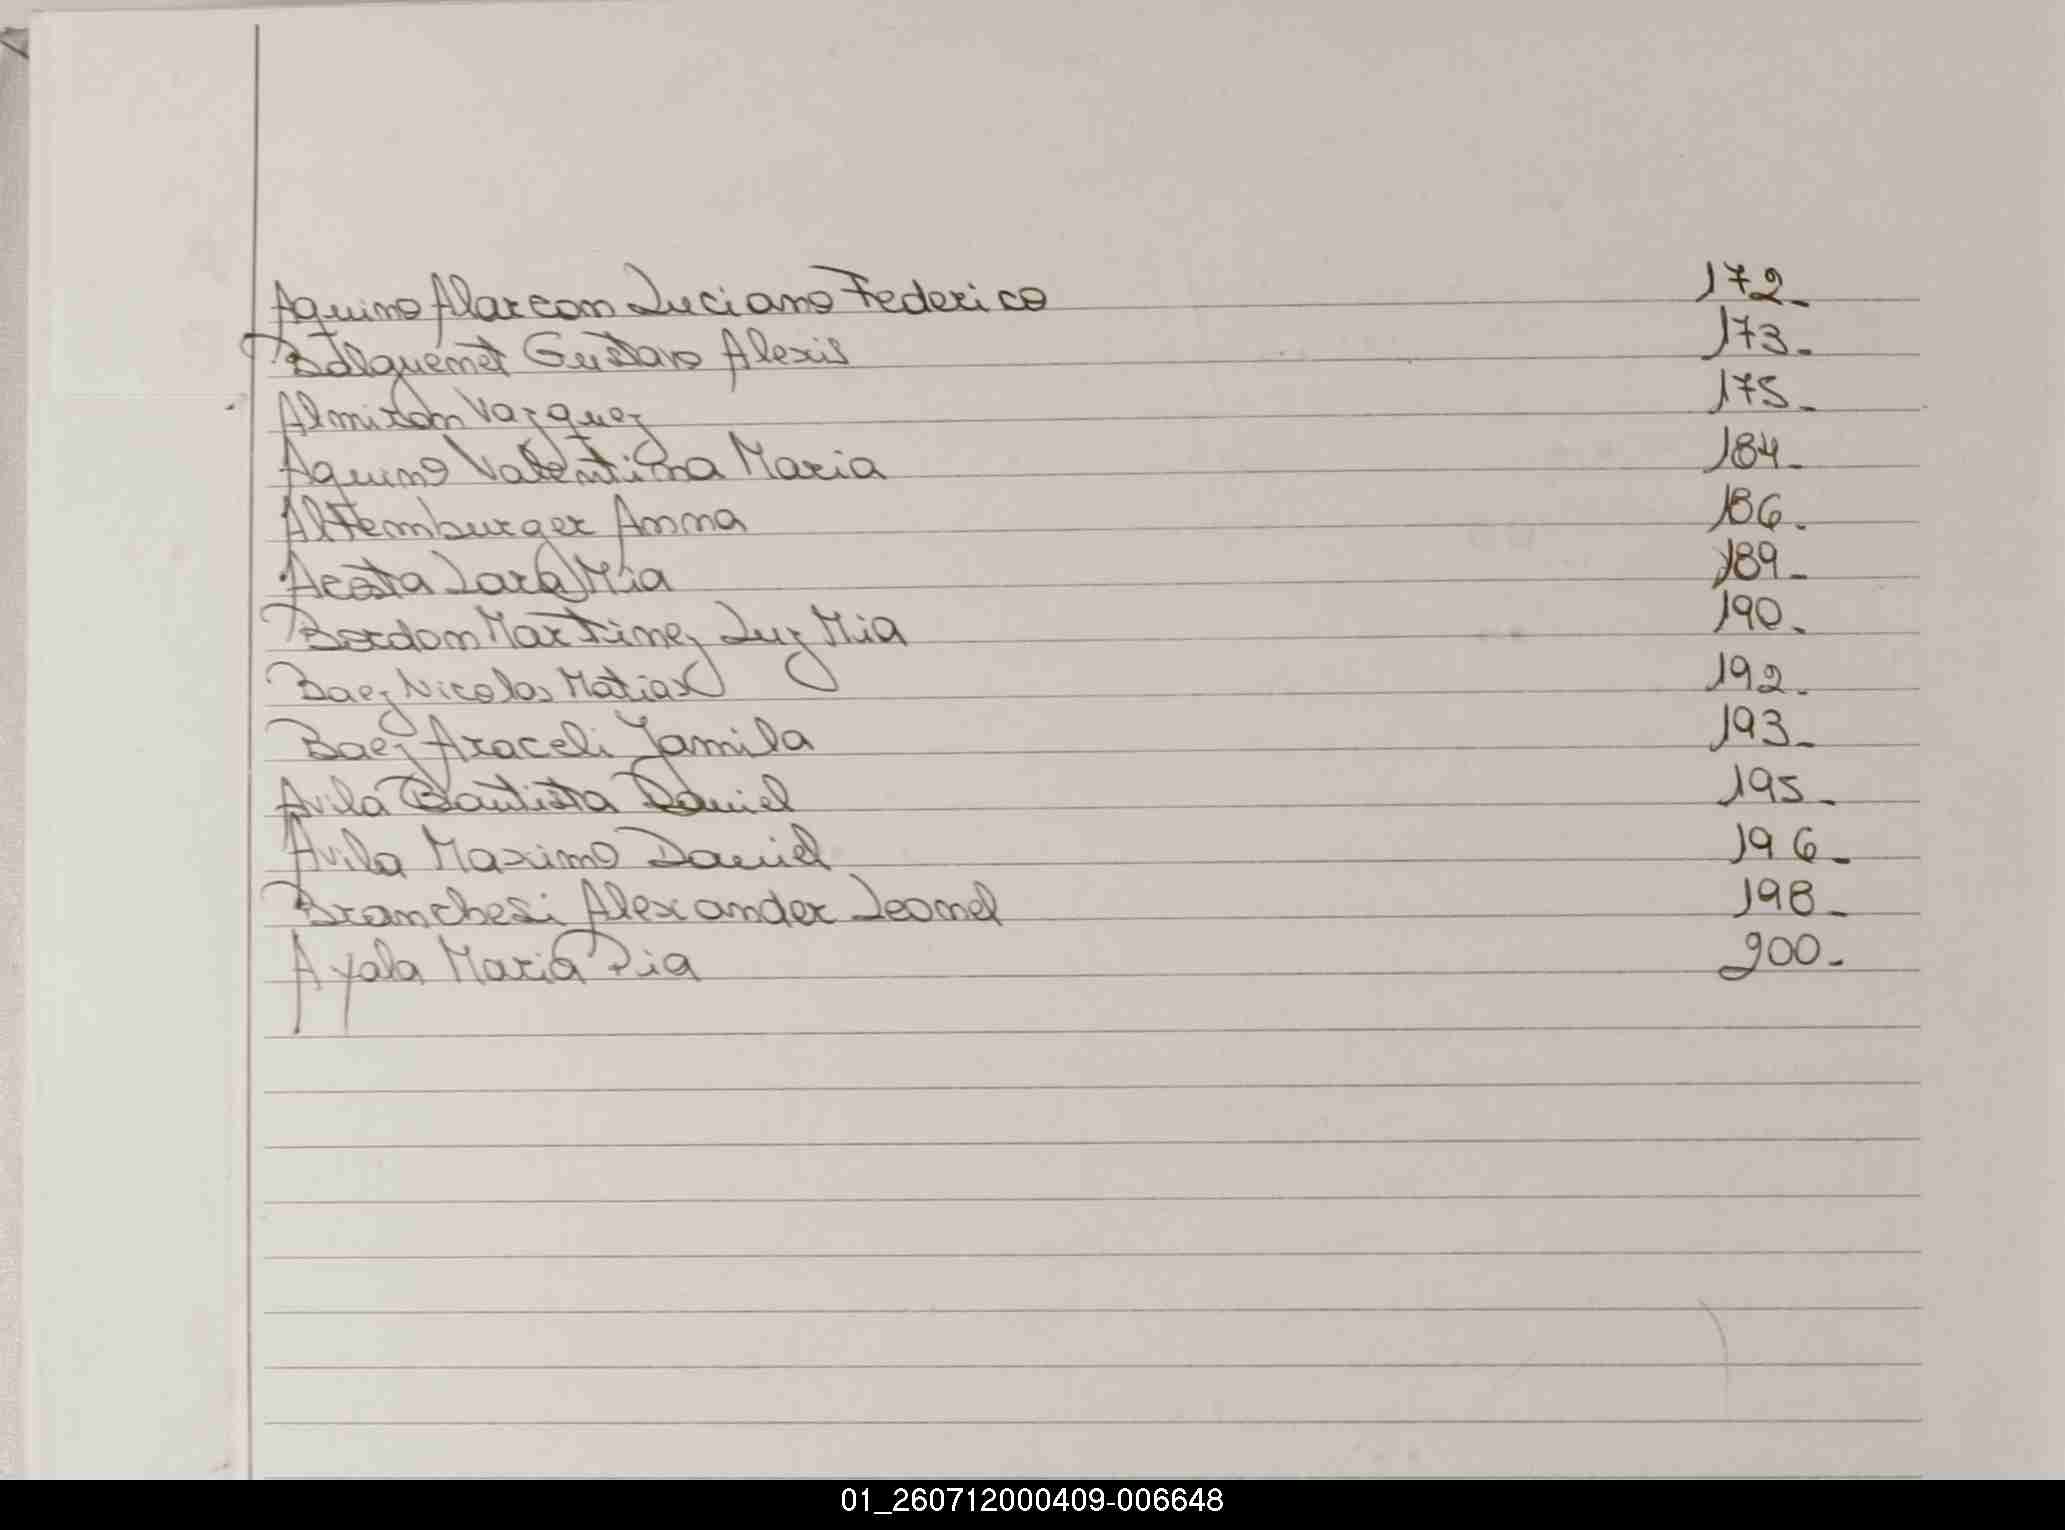 Aquino Alarcon Luciano Federico 172-
Balquenet Gustavo Alexis 173-
Almiron Vazquez 175-
Aquino Valentina Maria 184-
Altemburger Anna 186-
Acosta Lara Mia 189-
Bordon Martinez Luz Mia 190-
Baez Nicolas Matias 192-
Baez Araceli Jamila 193-
Avila Bautista Daniel 195-
Avila Maximo Daniel 196-
Branchesi Alexander Leonel 198-
Ayala Maria Pia 200-
01_260712000409-006648